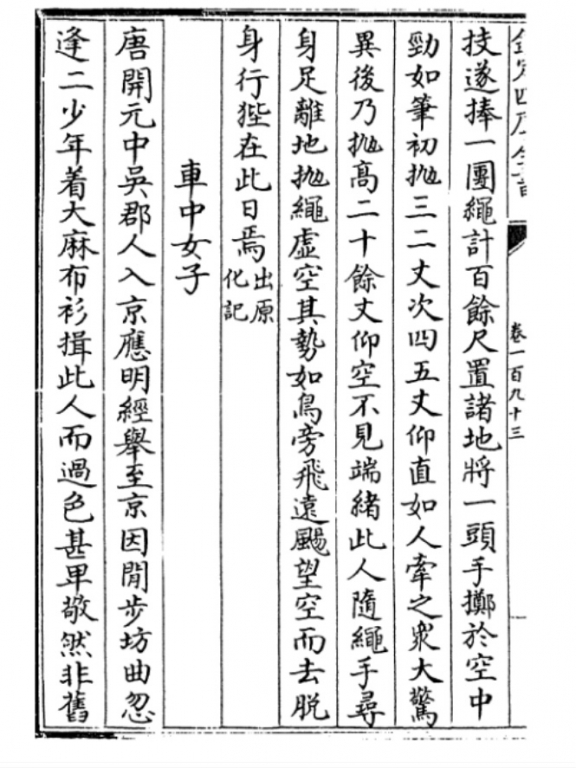 欽定四庫全書
卷一百九十三
技遂捧一團繩計百餘尺置諸地將一頭手擲於空中
勁如筆初抛三二丈次四五丈仰直如人牽之衆大驚
異後乃抛高二十餘丈仰空不見端緒此人隨繩手尋
身足離地抛繩虛空其勢如鳥旁飛遠颺望空而去脱
身行狴在此日焉出原化記
車中女子
唐開元中吳郡人入京應明經舉至京因閒步坊曲忽
逢二少年着大麻布衫揖此人而過色甚卑敬然非舊